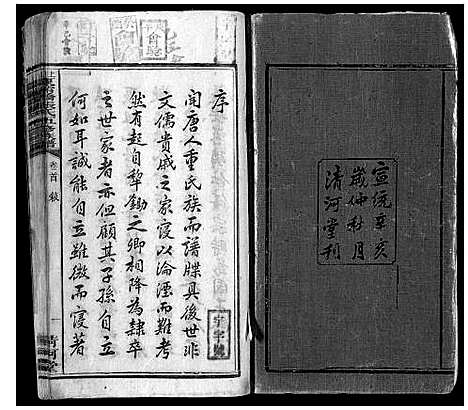 宣統辛亥
歲仲秋月
清河堂刊
序
聞唐人重氏族而譜牒具後世非
文儒貴戚之家寖以淪湮而難考
然有起自犁鋤之卿相降為隸卒
之世家者亦但顧其子孫自立
何如耳誠能自立雖微而寖著
宇字號
卷首
清河堂